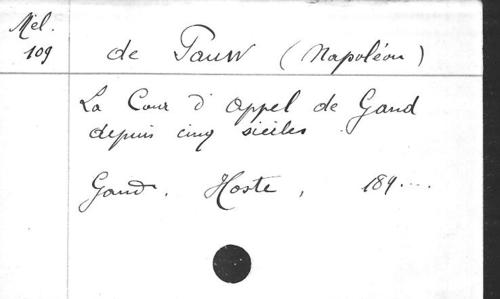 Mél.
109
de Pauw (Napoléon)
La Cour d'Appel de Gand
depuis cinq siècles.
Gand, Hoste, 189....